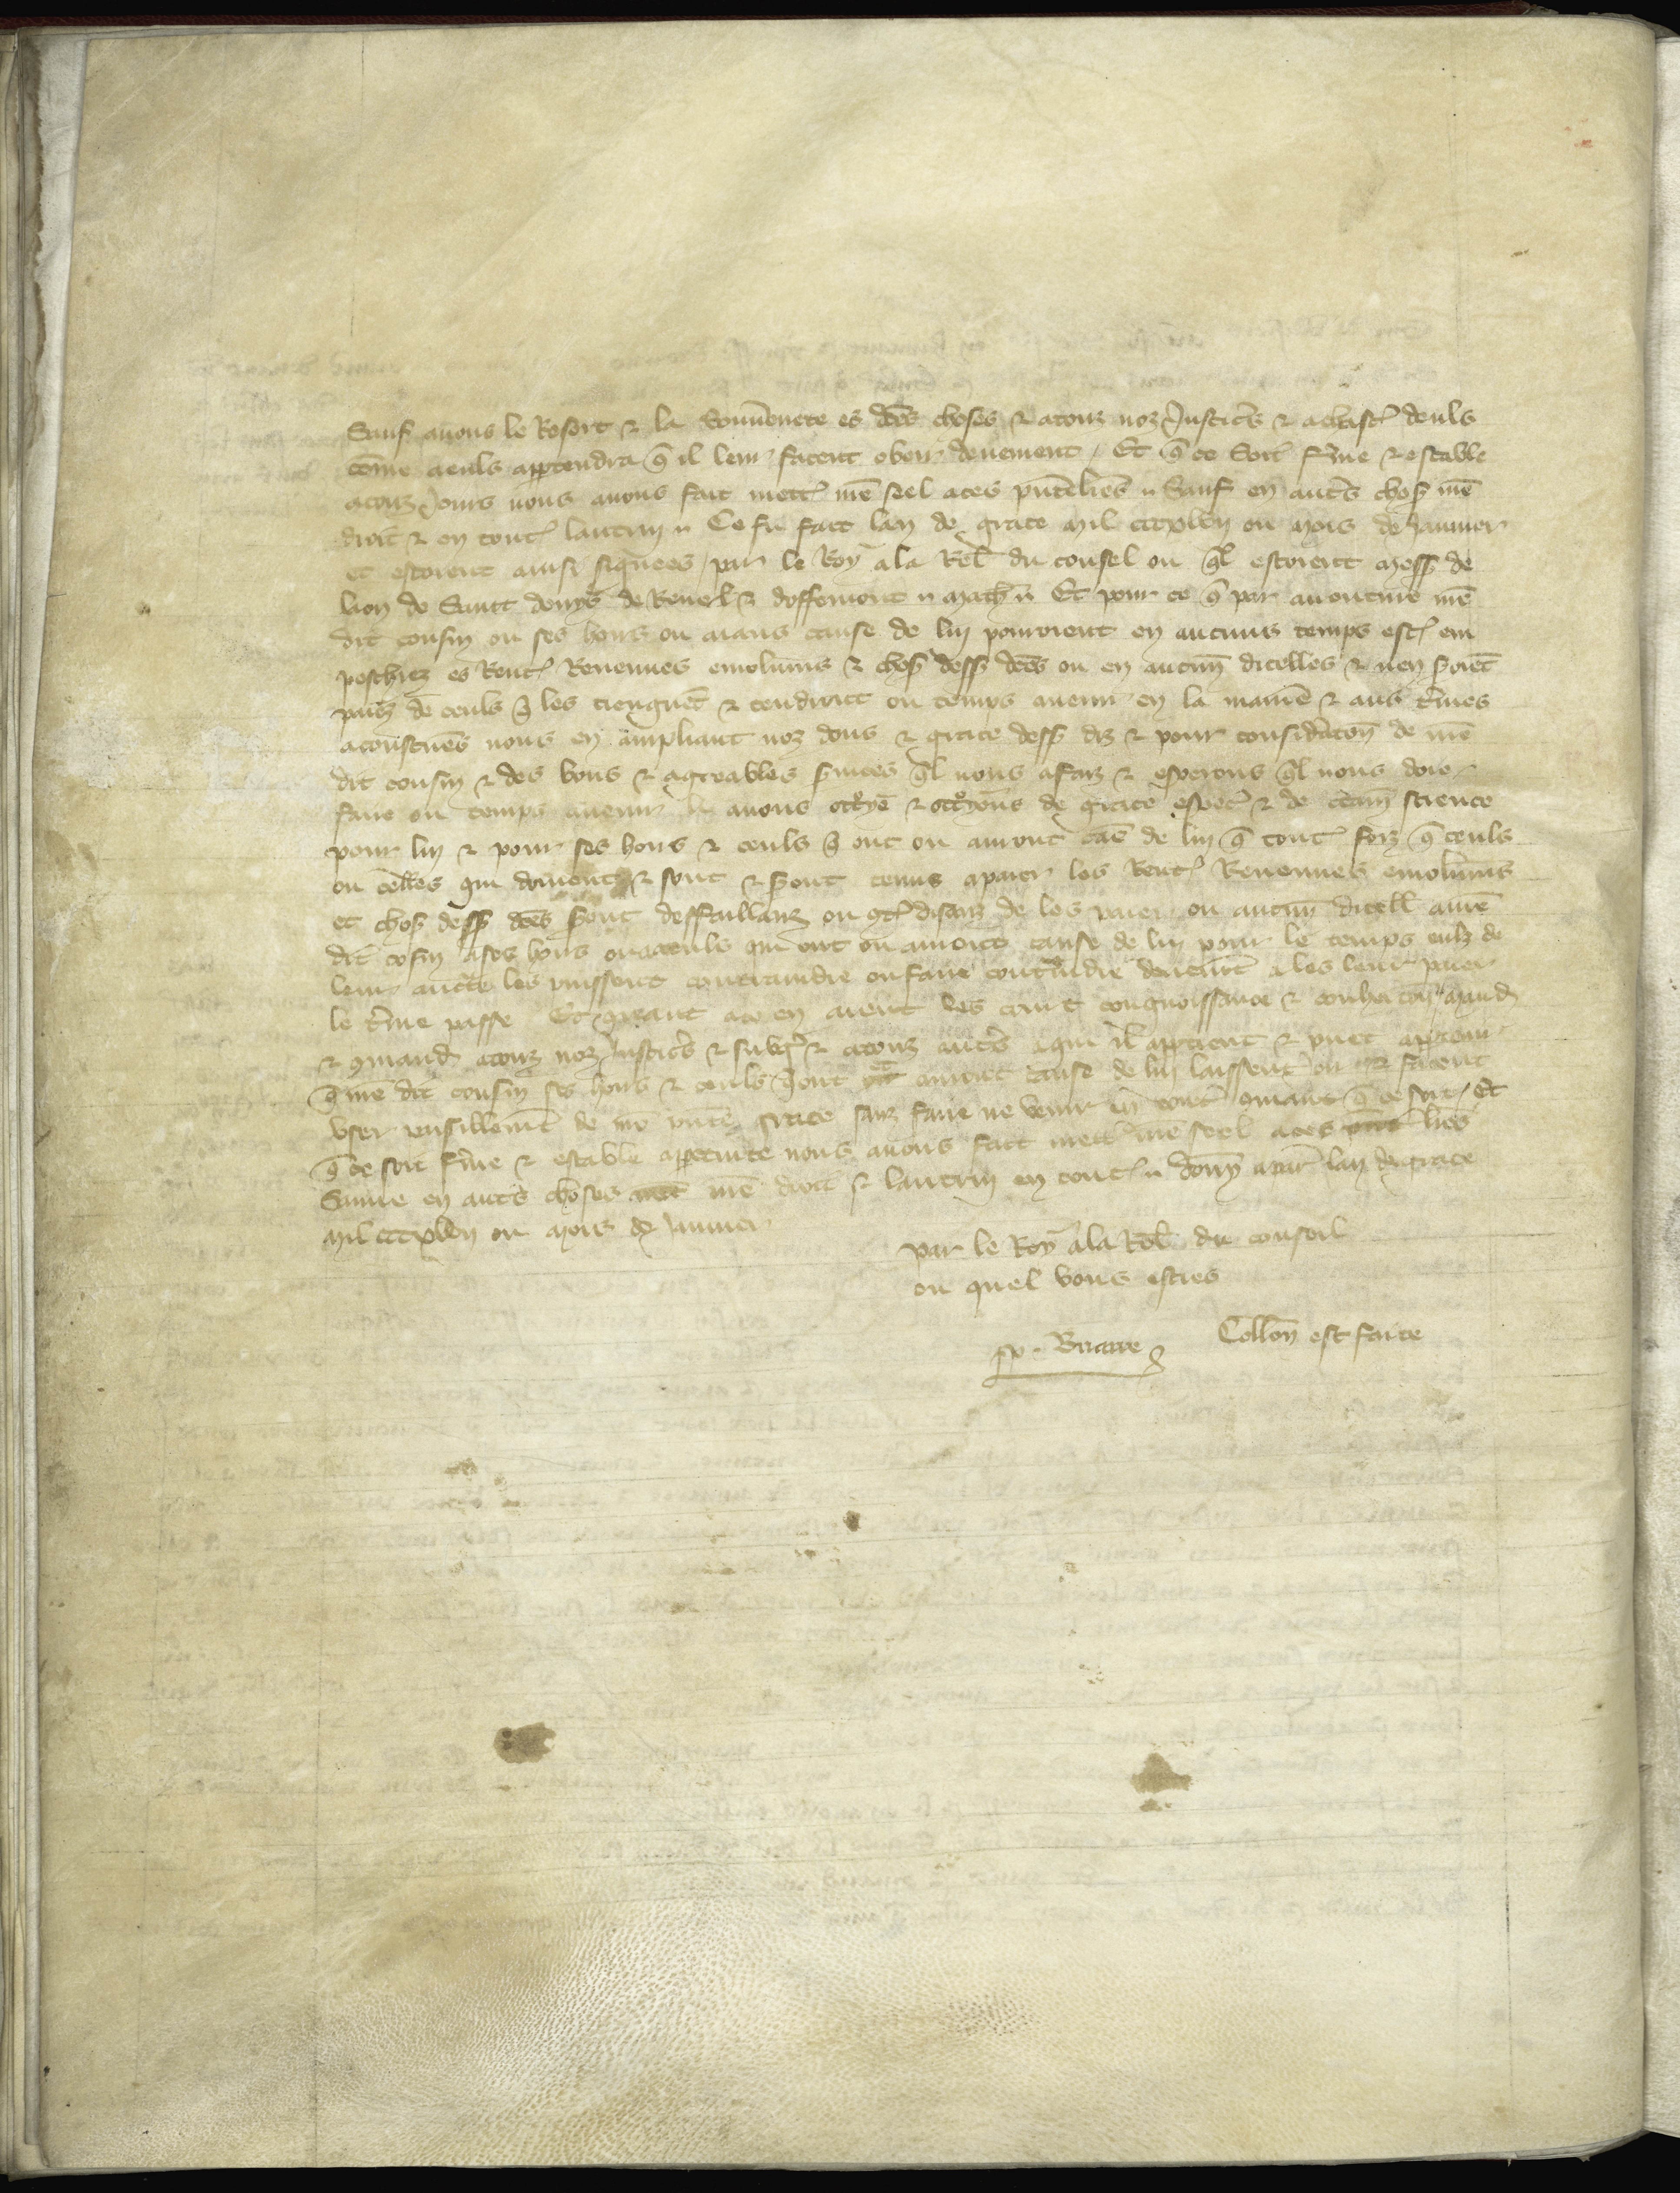 Sauf auons le Resort & la Souuenete es dces choses & a touz noz Justicers & a chascun deuls
come a euls appartendra q il leur facent obeir deuement / Et q ce soit ferme & estable
a touz jours nous auons fait mettre nre seel a ces pntes lres Sauf en autres choses nre
droit & en toutes lautrui Ce fu fait lan de grace mil cccxlvij ou mois de Januier
et estoient ainsi signees / par le Roy a la Rel du conseil ou ql estoient mess de
laon de Saint denys de Reuel & doffemont Math Et pour ce q par auenture nre
dit cousin ou ses hoirs ou aians cause de luy pourroient en aucuns temps estre em
peschiez es Rentes Reuenues emolumens & choses dess dces ou en aucune dicelles & nen seroient
paiez de ceuls qui les tiengnent & tendront ou temps auenir en la maniere & aus termes
acoustumes nous en ampliant noz dons & grace dess diz & pour consideracon de nre
dit cousin & des bons & agreables seruices ql nous a faiz & esperons ql nous doie
faire ou temps auenir li auons ottroye & ottroyons de grace especial & de certaine science
pour luy & pour ses hoirs & ceuls qui ont ou auront cause de luy q toutes foiz q ceuls
ou celles qui doiuent & sont & seront tenus a paier les Rentes Reuenues emolumens
et choses dess dces seront deffaillanz ou contredisanz de les paier ou aucune dicelles a nre
dit cosin a ses hoirs ou a ceuls qui ont ou auront cause de luy pour le temps eulz de
leur aucte les puissent contraindre ou faire contraindre deuement a les leur paier
le terme passe Et quant a ce en aient les court congnoissance & cohercion Mandons
& comandons a touz noz Justicers & subgez & a touz autres a qui il appartient & puet appartenir
q nre dit cousin ses hoirs & ceuls qui ont ou auront cause de luy laissent ou facent
vser paisiblement de nre pnte grace sanz faire ne venir en contre comant q ce soit / Et
q ce soit ferme & estable a perpetuite nous auons fait mettre nre seel a ces pntes lres
Sauue en autres choses nre droit & lautrui en toutes donne a paris lan de grace
mil cccxlvij ou mois de Januier
par le Roy a la Rel du conseil
ou quel vous esties
P. Briarre
Collon est faite